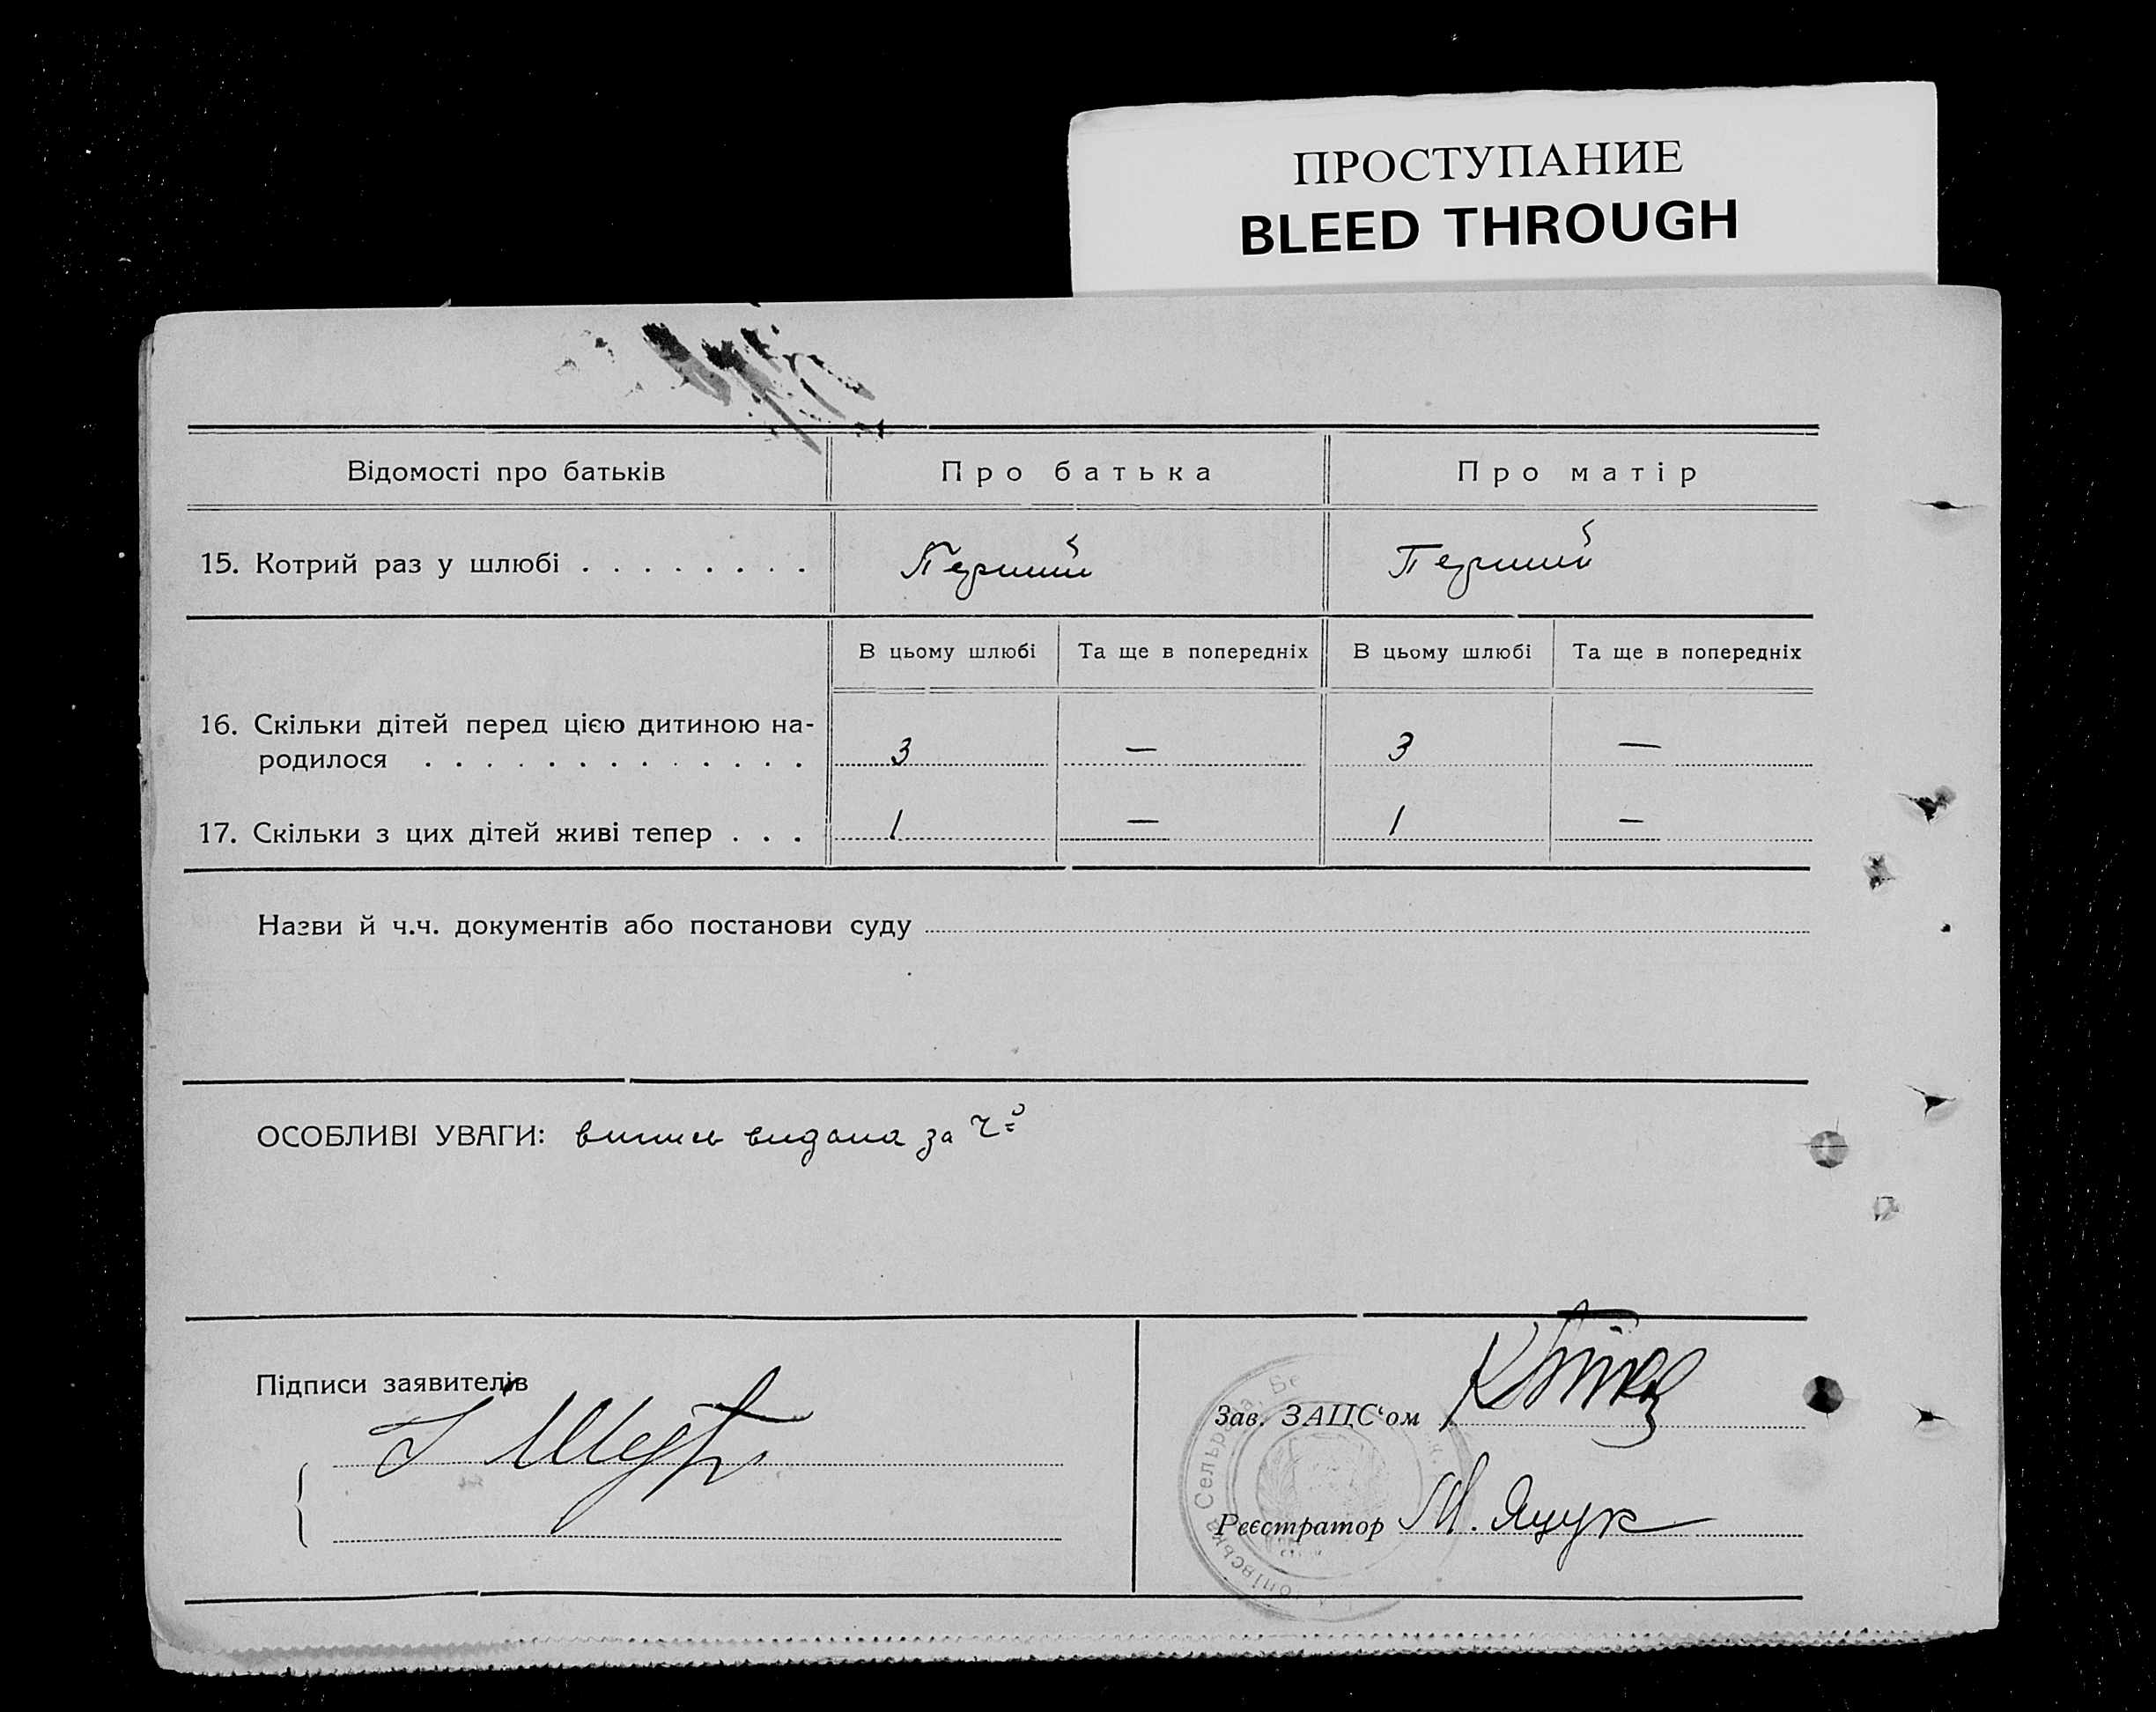 ПРОСТУПАНИЕ
BLEED THROUGH
Відомості про батьків Про батька Про матір
15. Котрий раз у шлюбі . . . . . . . . Перший Перший
В цьому шлюбі Та ще в попередніх В цьому шлюбі Та ще в попередніх
16. Скільки дітей перед цією дитиною на-
родилося . . . . . . . . . . . . . 3 — 3 —
17. Скільки з цих дітей живі тепер . . . 1 — 1 —
Назви й ч.ч. документів або постанови суду
ОСОБЛИВІ УВАГИ: випись видана за ч
Підписи заявителів
Зав. ЗАЦС'ом
Реєстратор М. Яцук
Сельрада